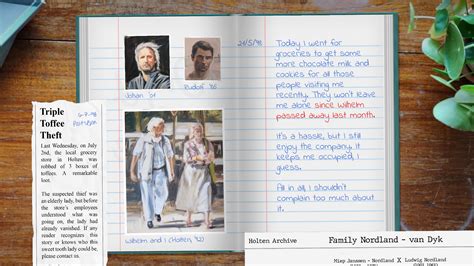 Triple
Toffee
Theft
Last Wednesday, on July
2nd, the local grocery
store in Holten was
robbed of 3 boxes of
toffees. A remarkable
loot.
The suspected thief was
an elderly lady, but before
the store's employees
understood what was
going on, the lady had
already vanished. If any
reader recognizes this
story or knows who this
sweet tooth lady could be,
please contact us.
Johan
Rudolf
Wilhelm and I (Holten, '92)
24/5/'98
Today I went for
some more groceries to get
more chocolate milk and
cookies for all those
people visiting me
recently. They won't leave
me alone since Wilhelm
passed away last month.
It's a hassle, but I still
enjoy the company. It
keeps me occupied, I
guess.
All in all, I shouldn't
complain too much about
it.
Holten Archive
Family Nordland - van Dyk
Miep Janssen - Nordland X Ludwig Nordland